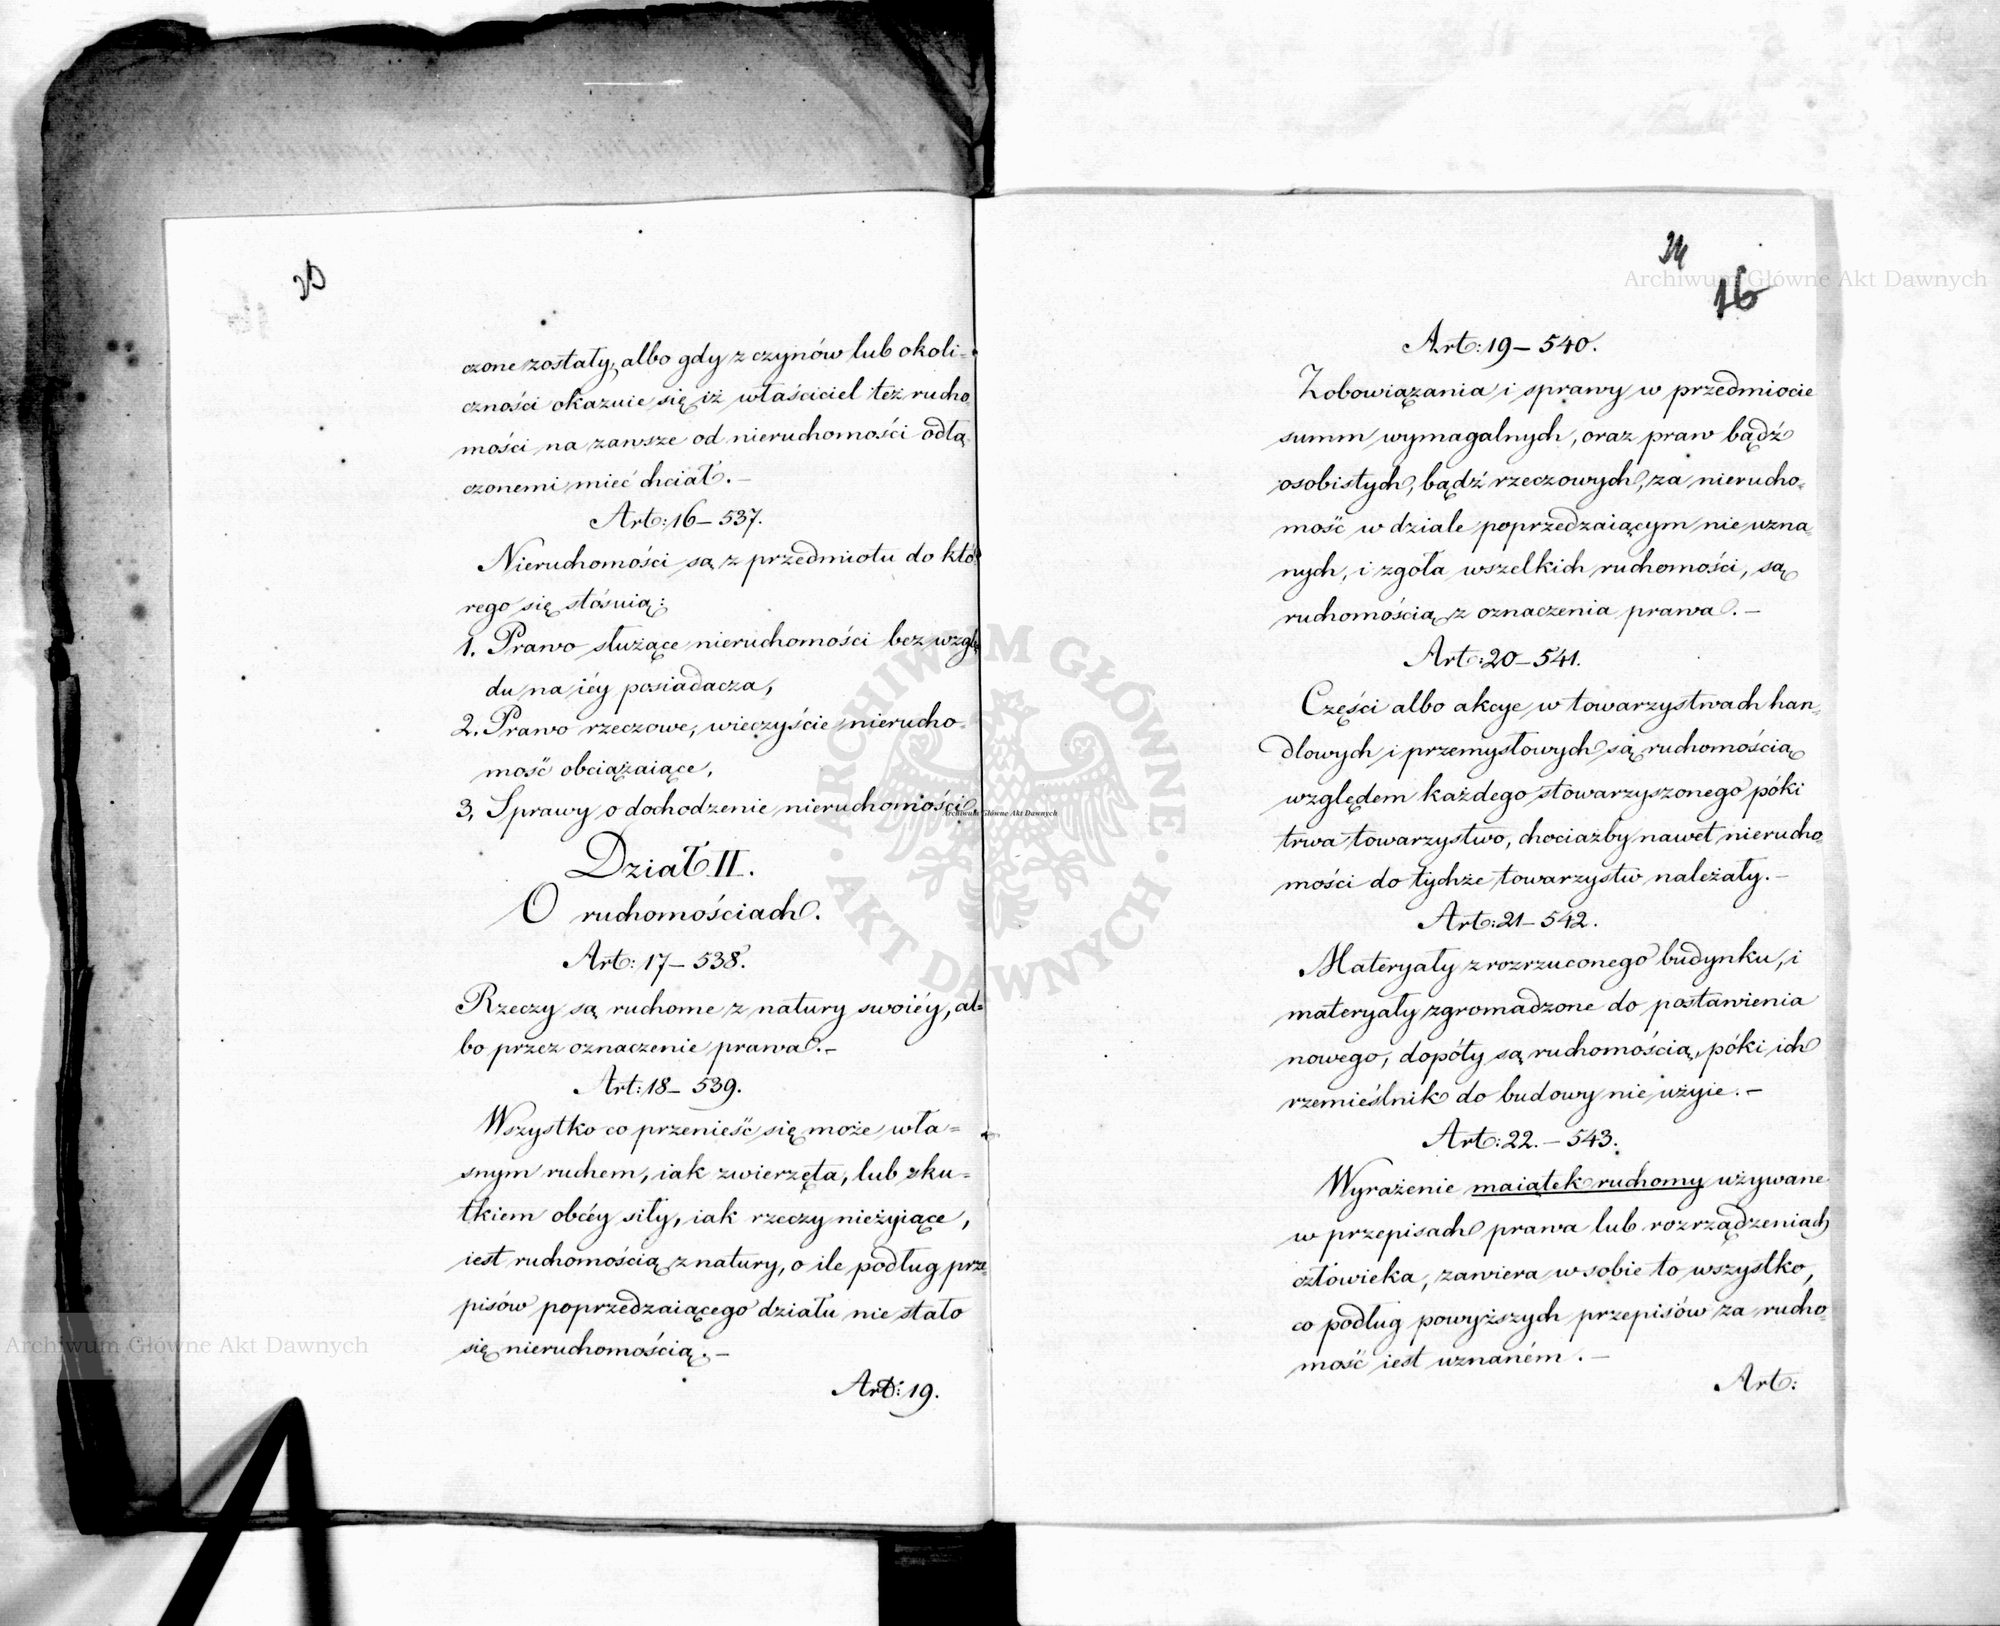 czone zostały, albo gdy z czynów lub okoli=
czności okazuie się iż właściciel też rucho=
mości na zawsze od nieruchomości odłą=
czonemi mieć chciał. –
Art: 16 – 537.
Nieruchomości są z przedmiotu do któ=
rego się stósuią:
1. Prawo służące nieruchomości bez wzglę
du na iéy posiadacza,
2. Prawo rzeczowe, wieczyście nierucho=
mość obciążaiące,
3. Sprawy o dochodzenie nieruchomości.
Dział II.
O ruchomościach.
Art: 17 – 538.
Rzeczy są ruchome z natury swoiéy, al=
bo przez oznaczenie prawa. –
Art: 18 – 539.
Wszystko co przenieść się może wła=
snym ruchem, iak zwierzęta, lub sku=
tkiem obcéy siły, iak rzeczy nieżyiące,
iest ruchomością z natury, o ile podług prze=
pisów poprzedzaiącego działu nie stało
się nieruchomością. –
Art: 19.
16
Art: 19 – 540.
Zobowiązania i sprawy w przedmiocie
summ wymagalnych, oraz praw bądź
osobistych, bądź rzeczowych, za nierucho=
mość w dziale poprzedzaiącym nie uzna=
nych, i zgoła wszelkich ruchomości, są
ruchomością z oznaczenia prawa. –
Art: 20 – 541.
Części albo akcye w towarzystwach han=
dlowych i przemysłowych są ruchomością
względem każdego stowarzyszonego póki
trwa towarzystwo, chociażby nawet nierucho=
mości do tychże towarzystw należały. –
Art: 21 – 542.
Materyały z rozrzuconego budynku, i
materyały zgromadzone do postawienia
nowego, dopóty są ruchomością, póki ich
rzemieślnik do budowy nie użyie. –
Art: 22. – 543.
Wyrażenie maiątek ruchomy używane
w przepisach prawa lub rozrządzeniach
człowieka, zawiera w sobie to wszystko,
co podług powyższych przepisów za rucho=
mość iest uznaném. –
Art:
Archiwum Główne Akt Dawnych
Archiwum Główne Akt Dawnych
Archiwum Główne Akt Dawnych
ARCHIWUM GŁÓWNE
AKT DAWNYCH